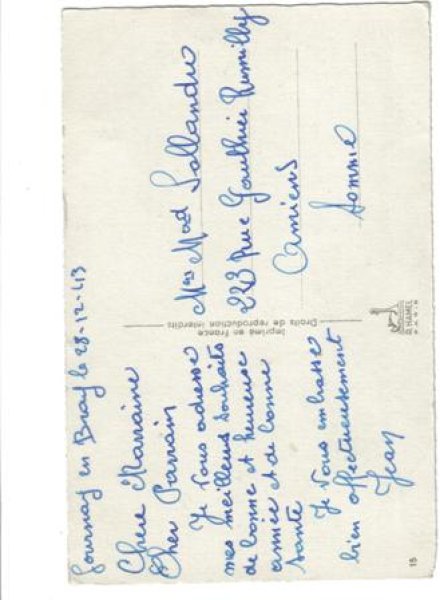 Gournay en Bray le 28-12-43
Chere Marraine
Cher Parrain
Je vous adresse
mes meilleurs souhaits
de bonne et heureuse
année et de bonne
santé
Je vous embrasse
bien affectueusement
Jean
15
Imprimé en France
Droits de reproduction interdits
Mrs Mad Sallandre
223 Rue Gauthier Rumilly
Amiens
Somme
D. HAMEL